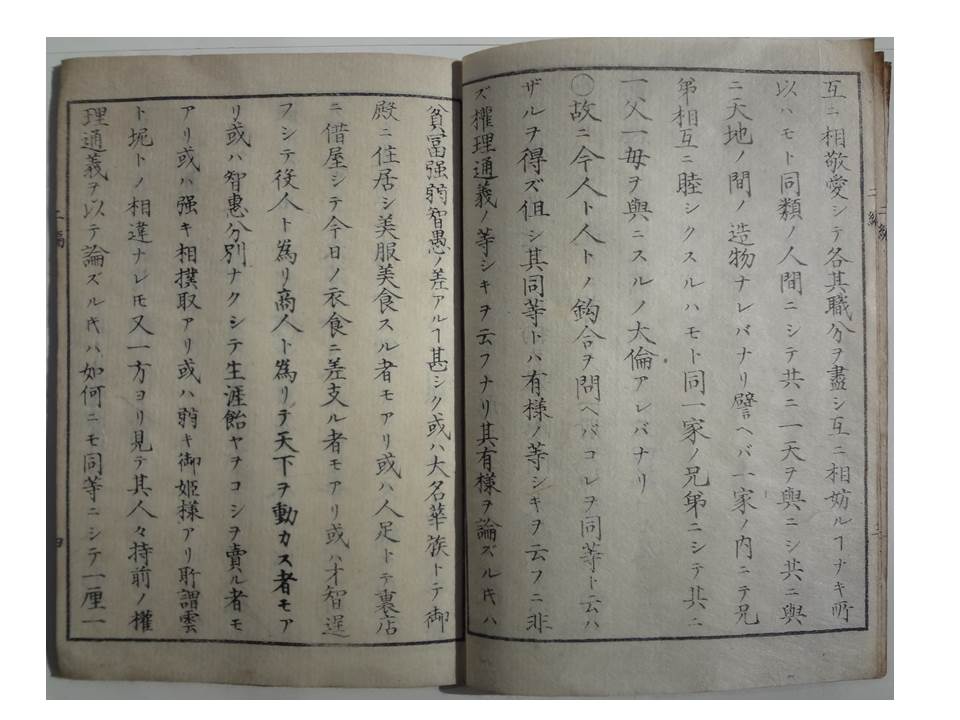 互ニ相敬愛シテ各其職分ヲ盡シ互ニ相妨ルヿナキ所
以ハモト同類ノ人間ニシテ共ニ一天ヲ與ニシ共ニ與
ニ天地ノ間ノ造物ナレバナリ譬ヘバ一家ノ内ニテ兄
弟相互ニ睦シクスルハモト同一家ノ兄弟ニシテ共ニ
一父一母ヲ與ニスルノ大倫アレバナリ
〇故ニ今人ト人トノ鈎合ヲ問ヘバコレヲ同等ト云ハ
ザルヲ得ズ但シ其同等トハ有様ノ等シキヲ云フニ非
ズ權理通義ノ等シキヲ云フナリ其有様ヲ論ズル𪜈ハ
貧富强弱智愚ノ差アルヿ甚シク或ハ大名華族トテ御
殿ニ住居シ美服美食スル者モアリ或ハ人足トテ裏店
ニ借屋シテ今日ノ衣食ニ差支ル者モアリ或ハ才智逞
フシテ役人ト爲リ商人ト爲リテ天下ヲ動カス者モア
リ或ハ智惠分別ナクシテ生涯飴ヤヲコシヲ賣ル者モ
アリ或ハ强キ相撲取アリ或ハ弱キ御姫様アリ所謂雲
ト坭トノ相違ナレ𪜈又一方ヨリ見テ其人々持前ノ權
理通義ヲ以テ論ズル𪜈ハ如何ニモ同等ニシテ一厘一